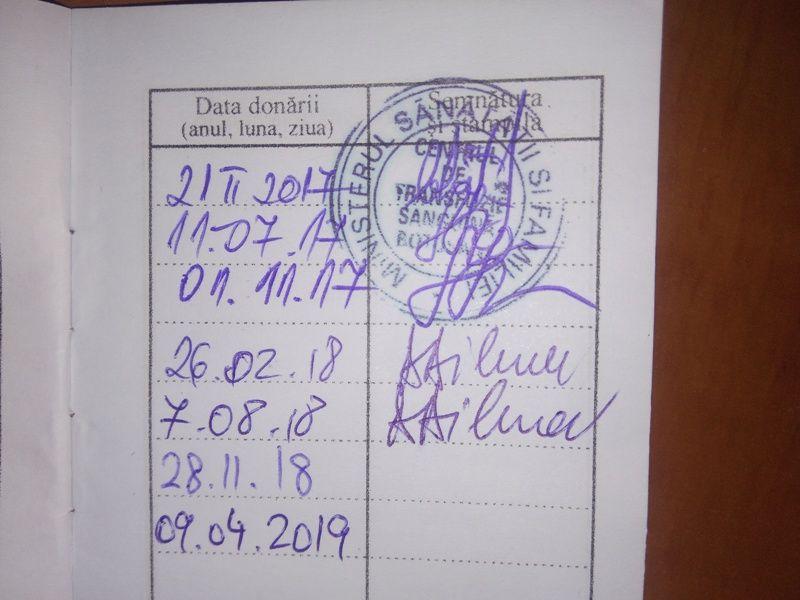 Data donării
(anul, luna, ziua)
Semnătura
și ștampila
MINISTERUL SĂNĂTĂȚII ȘI FAMILIEI
CENTRUL
DE
TRANSFUZIE
21 II 2017
11.07.17
01.11.17
26.02.18
7.08.18
28.11.18
09.04.2019